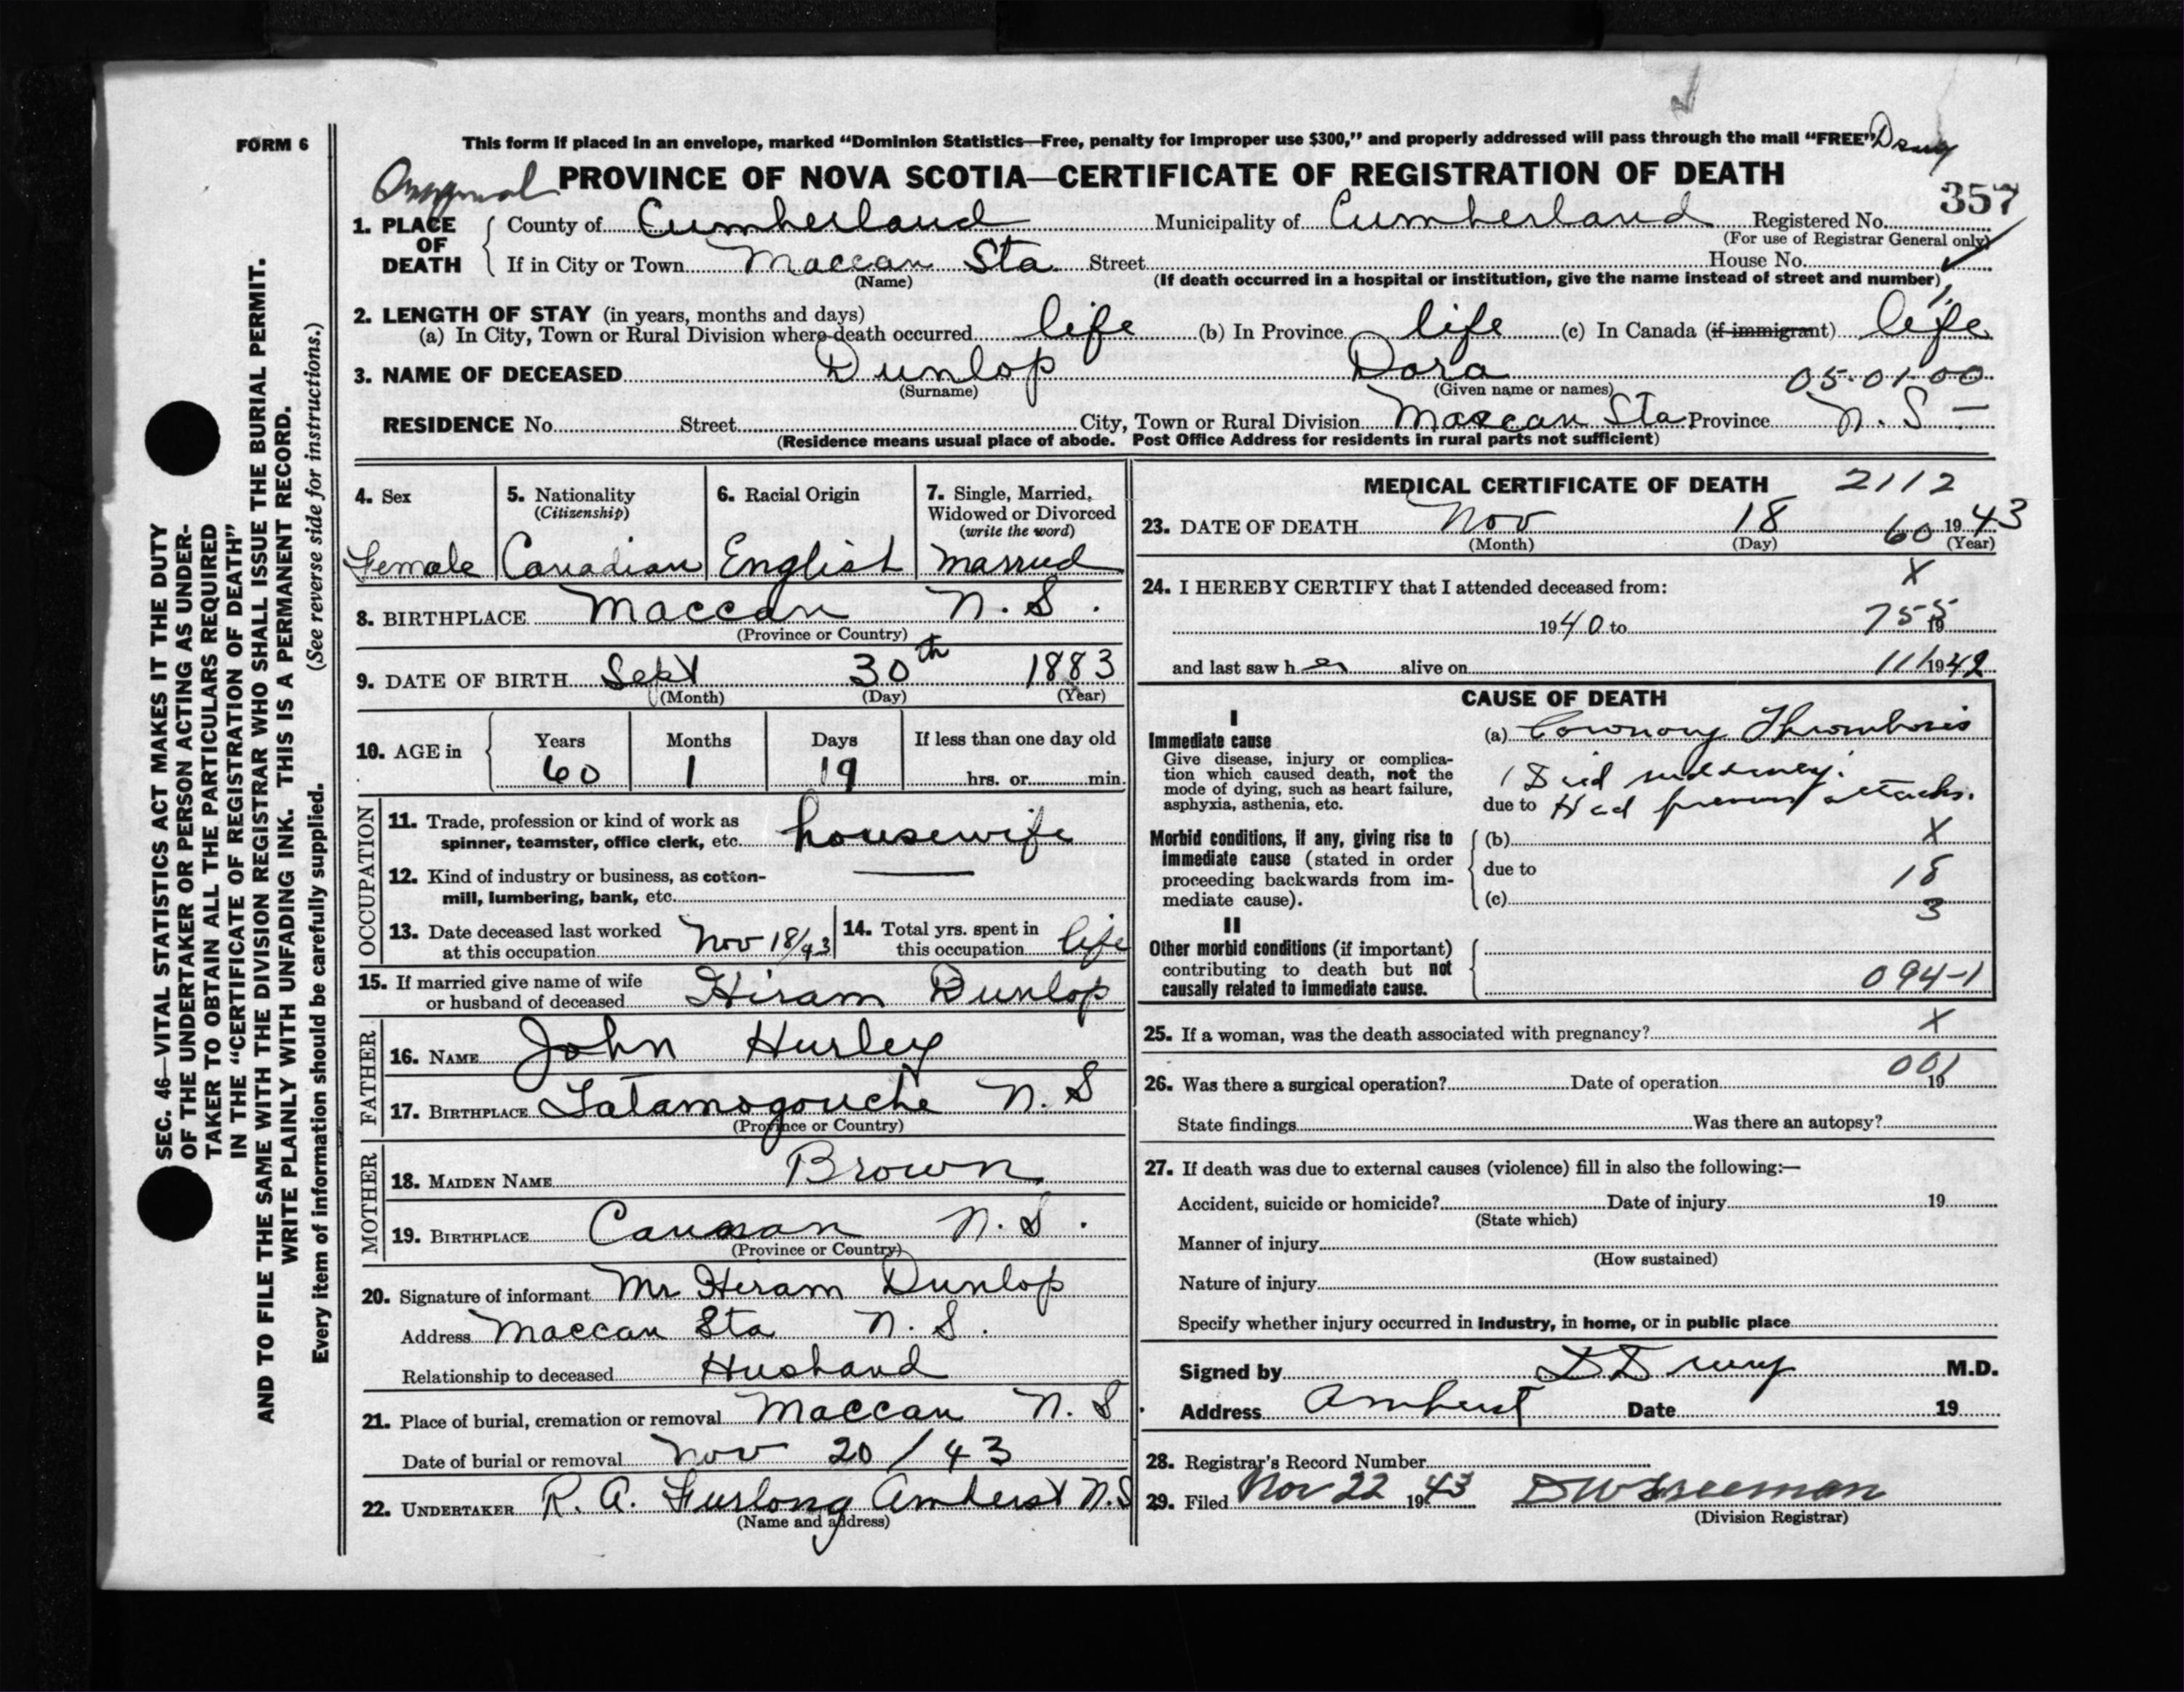 FORM 6
This form if placed in an envelope, marked "Dominion Statistics—Free, penalty for improper use $300," and properly addressed will pass through the mail "FREE"
PROVINCE OF NOVA SCOTIA—CERTIFICATE OF REGISTRATION OF DEATH
357
1. PLACE OF DEATH County of Cumberland Municipality of Cumberland Registered No.
(For use of Registrar General only)
If in City or Town Maccan Sta Street House No.
(Name) (If death occurred in a hospital or institution, give the name instead of street and number)
2. LENGTH OF STAY (in years, months and days)
(a) In City, Town or Rural Division where death occurred life (b) In Province life (c) In Canada (if immigrant) life
3. NAME OF DECEASED Dunlop Dora 05-01-00
(Surname) (Given name or names)
RESIDENCE No. Street City, Town or Rural Division Maccan Sta Province N. S —
(Residence means usual place of abode. Post Office Address for residents in rural parts not sufficient)
4. Sex
Female
5. Nationality
(Citizenship)
Canadian
6. Racial Origin
English
7. Single, Married,
Widowed or Divorced
(write the word)
Married
8. BIRTHPLACE Maccan N. S.
(Province or Country)
9. DATE OF BIRTH Sept 30th 1883
(Month) (Day) (Year)
10. AGE in Years Months Days If less than one day old
60 1 19 hrs. or min.
OCCUPATION
11. Trade, profession or kind of work as
spinner, teamster, office clerk, etc. housewife
12. Kind of industry or business, as cotton-
mill, lumbering, bank, etc.
13. Date deceased last worked
at this occupation Nov 18/43
14. Total yrs. spent in
this occupation life
15. If married give name of wife
or husband of deceased Hiram Dunlop
FATHER
16. NAME John Hurley
17. BIRTHPLACE Tatamogouche N. S
(Province or Country)
MOTHER
18. MAIDEN NAME Brown
19. BIRTHPLACE N. S.
(Province or Country)
20. Signature of informant Mr Hiram Dunlop
Address Maccan Sta N. S.
Relationship to deceased Husband
21. Place of burial, cremation or removal Maccan N. S
Date of burial or removal Nov 20/43
22. UNDERTAKER R. A. Furlong Amherst N.S
(Name and address)
MEDICAL CERTIFICATE OF DEATH 2112
23. DATE OF DEATH Nov 18 60 1943
(Month) (Day) (Year)
X
24. I HEREBY CERTIFY that I attended deceased from:
1940 to 755 19
and last saw her alive on 111 1942
CAUSE OF DEATH
I
Immediate cause
Give disease, injury or complica-
tion which caused death, not the
mode of dying, such as heart failure,
asphyxia, asthenia, etc.
(a) Coronary Thrombosis
Died suddenly.
due to Had previous attacks.
Morbid conditions, if any, giving rise to
immediate cause (stated in order
proceeding backwards from im-
mediate cause).
(b) X
due to 18
(c) 3
II
Other morbid conditions (if important)
contributing to death but not
causally related to immediate cause.
094-1
25. If a woman, was the death associated with pregnancy? X
001
26. Was there a surgical operation? Date of operation 19
State findings Was there an autopsy?
27. If death was due to external causes (violence) fill in also the following:—
Accident, suicide or homicide? Date of injury 19
(State which)
Manner of injury
(How sustained)
Nature of injury
Specify whether injury occurred in industry, in home, or in public place
Signed by M.D.
Address Amherst Date 19
28. Registrar's Record Number
29. Filed Nov 22 1943 D W Freeman
(Division Registrar)
SEC. 46—VITAL STATISTICS ACT MAKES IT THE DUTY
OF THE UNDERTAKER OR PERSON ACTING AS UNDER-
TAKER TO OBTAIN ALL THE PARTICULARS REQUIRED
IN THE "CERTIFICATE OF REGISTRATION OF DEATH"
AND TO FILE THE SAME WITH THE DIVISION REGISTRAR WHO SHALL ISSUE THE BURIAL PERMIT.
WRITE PLAINLY WITH UNFADING INK. THIS IS A PERMANENT RECORD.
Every item of information should be carefully supplied. (See reverse side for instructions.)